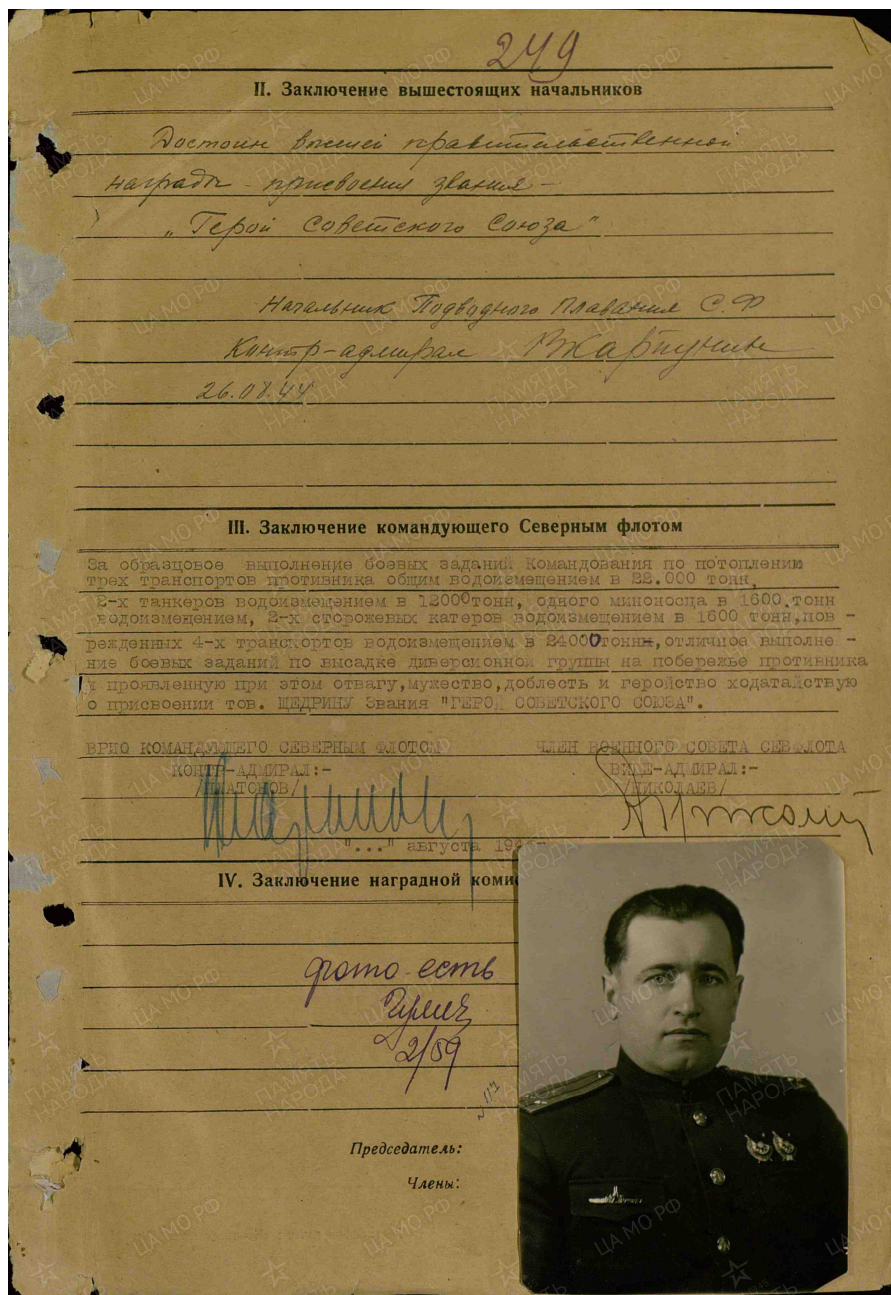 249
II. Заключение вышестоящих начальников
Достоин высшей правительственной
награды - присвоения звания -
„Герой Советского Союза"
Начальник Подводного Плавания С.Ф
Контр-адмирал
26.08.44
III. Заключение командующего Северным флотом
За образцовое выполнение боевых заданий Командования по потоплению
трех транспортов противника общим водоизмещением в 22.000 тонн,
2-х танкеров водоизмещением в 12000тонн, одного миноносца в 1600 тонн
водоизмещением, 2-х сторожевых катеров водоизмещением в 1600 тонн,пов -
режденных 4-х транспортов водоизмещением в 24000тонн,отличное выполне -
ние боевых заданий по высадке диверсионной группы на побережье противника
и проявленную при этом отвагу,мужество,доблесть и геройство ходатайствую
о присвоении тов. ЩЕДРИНУ Звания "ГЕРОЙ СОВЕТСКОГО СОЮЗА".
ВРИО КОМАНДУЮЩЕГО СЕВЕРНЫМ ФЛОТОМ ЧЛЕН ВОЕННОГО СОВЕТА СЕВФЛОТА
КОНТР-АДМИРАЛ:- ВИЦЕ-АДМИРАЛ:-
/ПЛАТОНОВ/ /НИКОЛАЕВ/
"..." августа 194
IV. Заключение наградной коми
фото есть
2/59
Председатель:
Члены:
ЦА МО РФ
ПАМЯТЬ НАРОДА